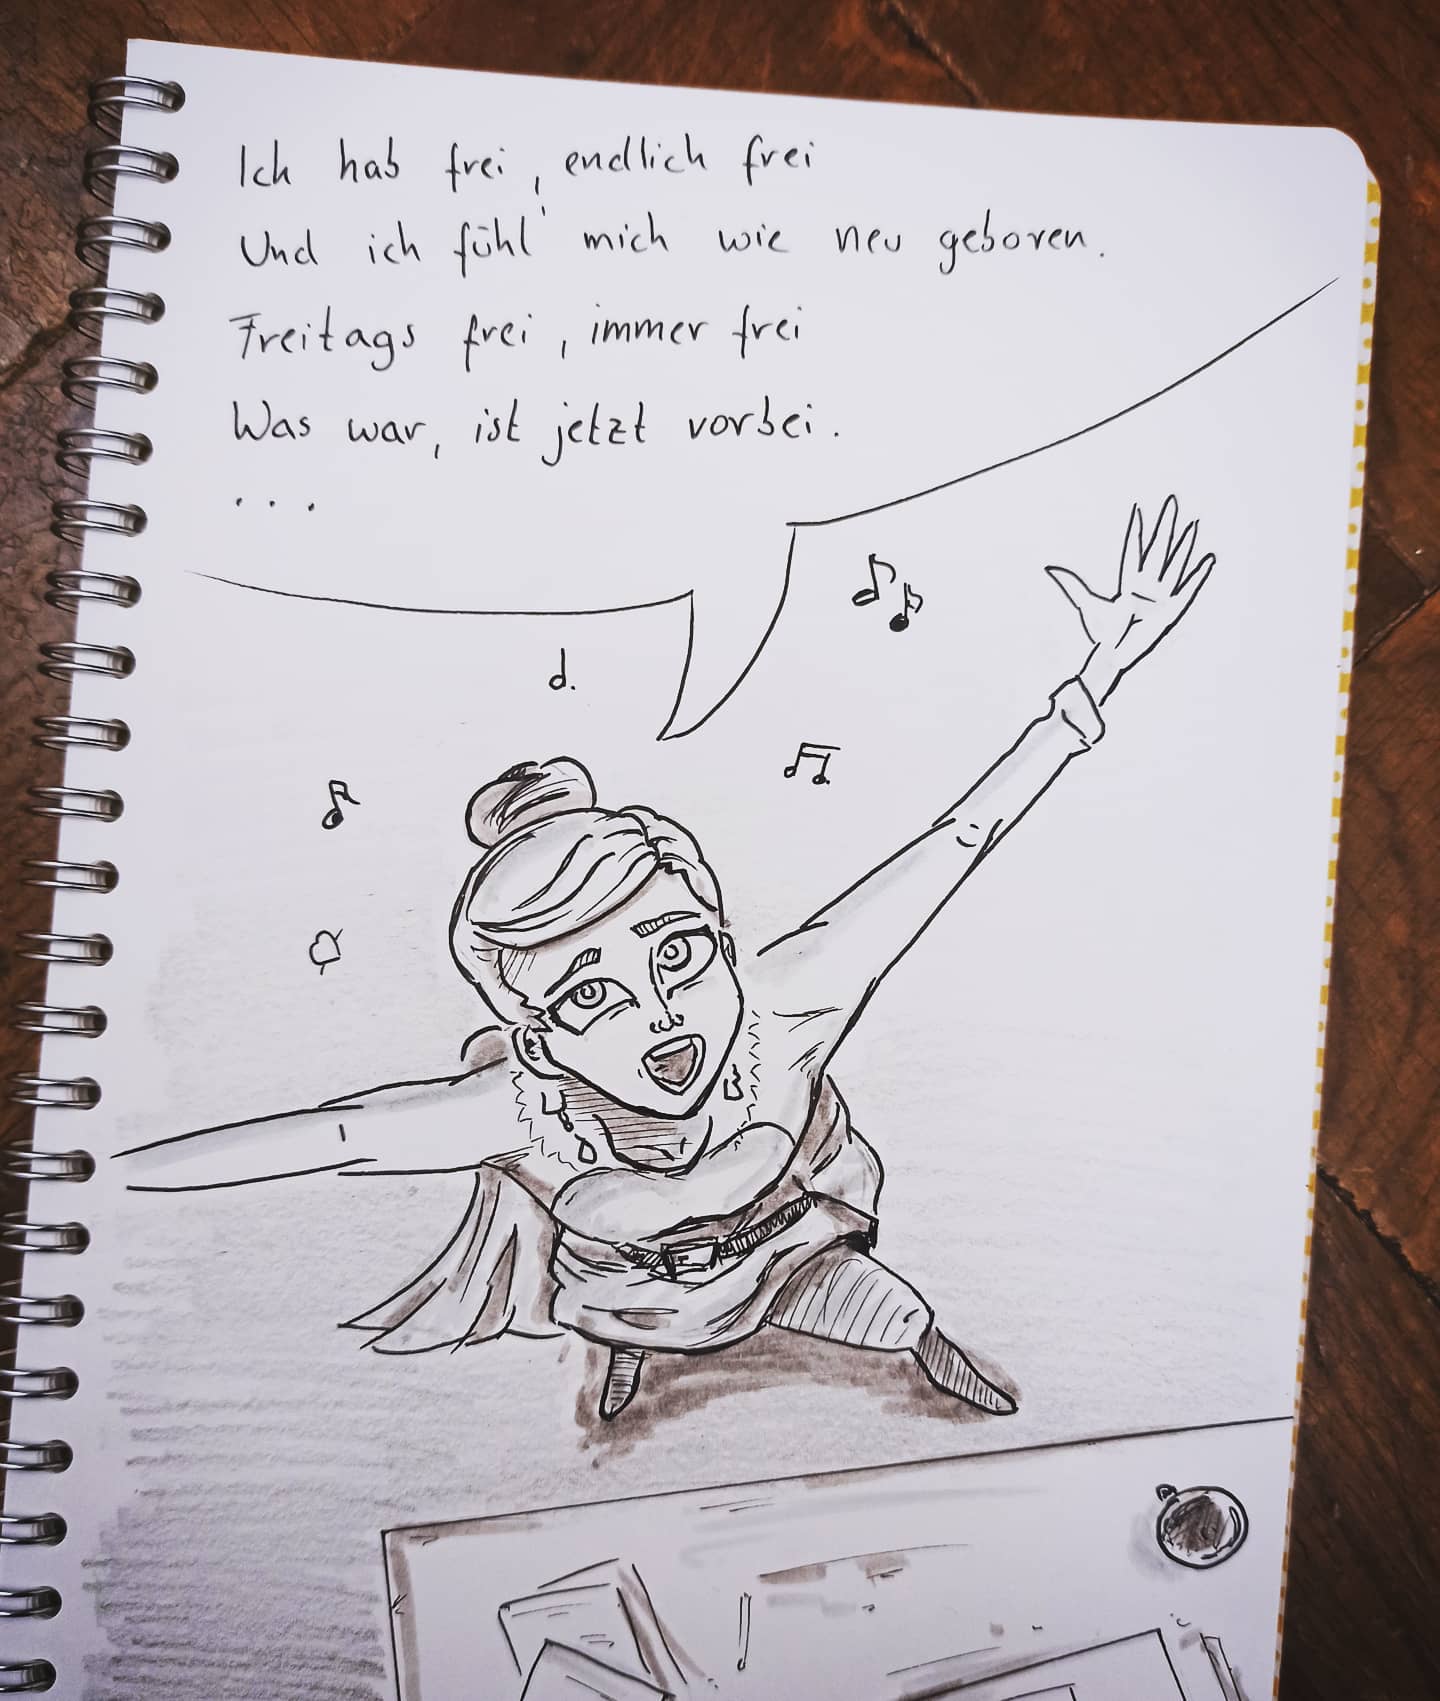 Ich hab frei, endlich frei
Und ich fühl' mich wie neu geboren.
Freitags frei, immer frei
Was war, ist jetzt vorbei.
...